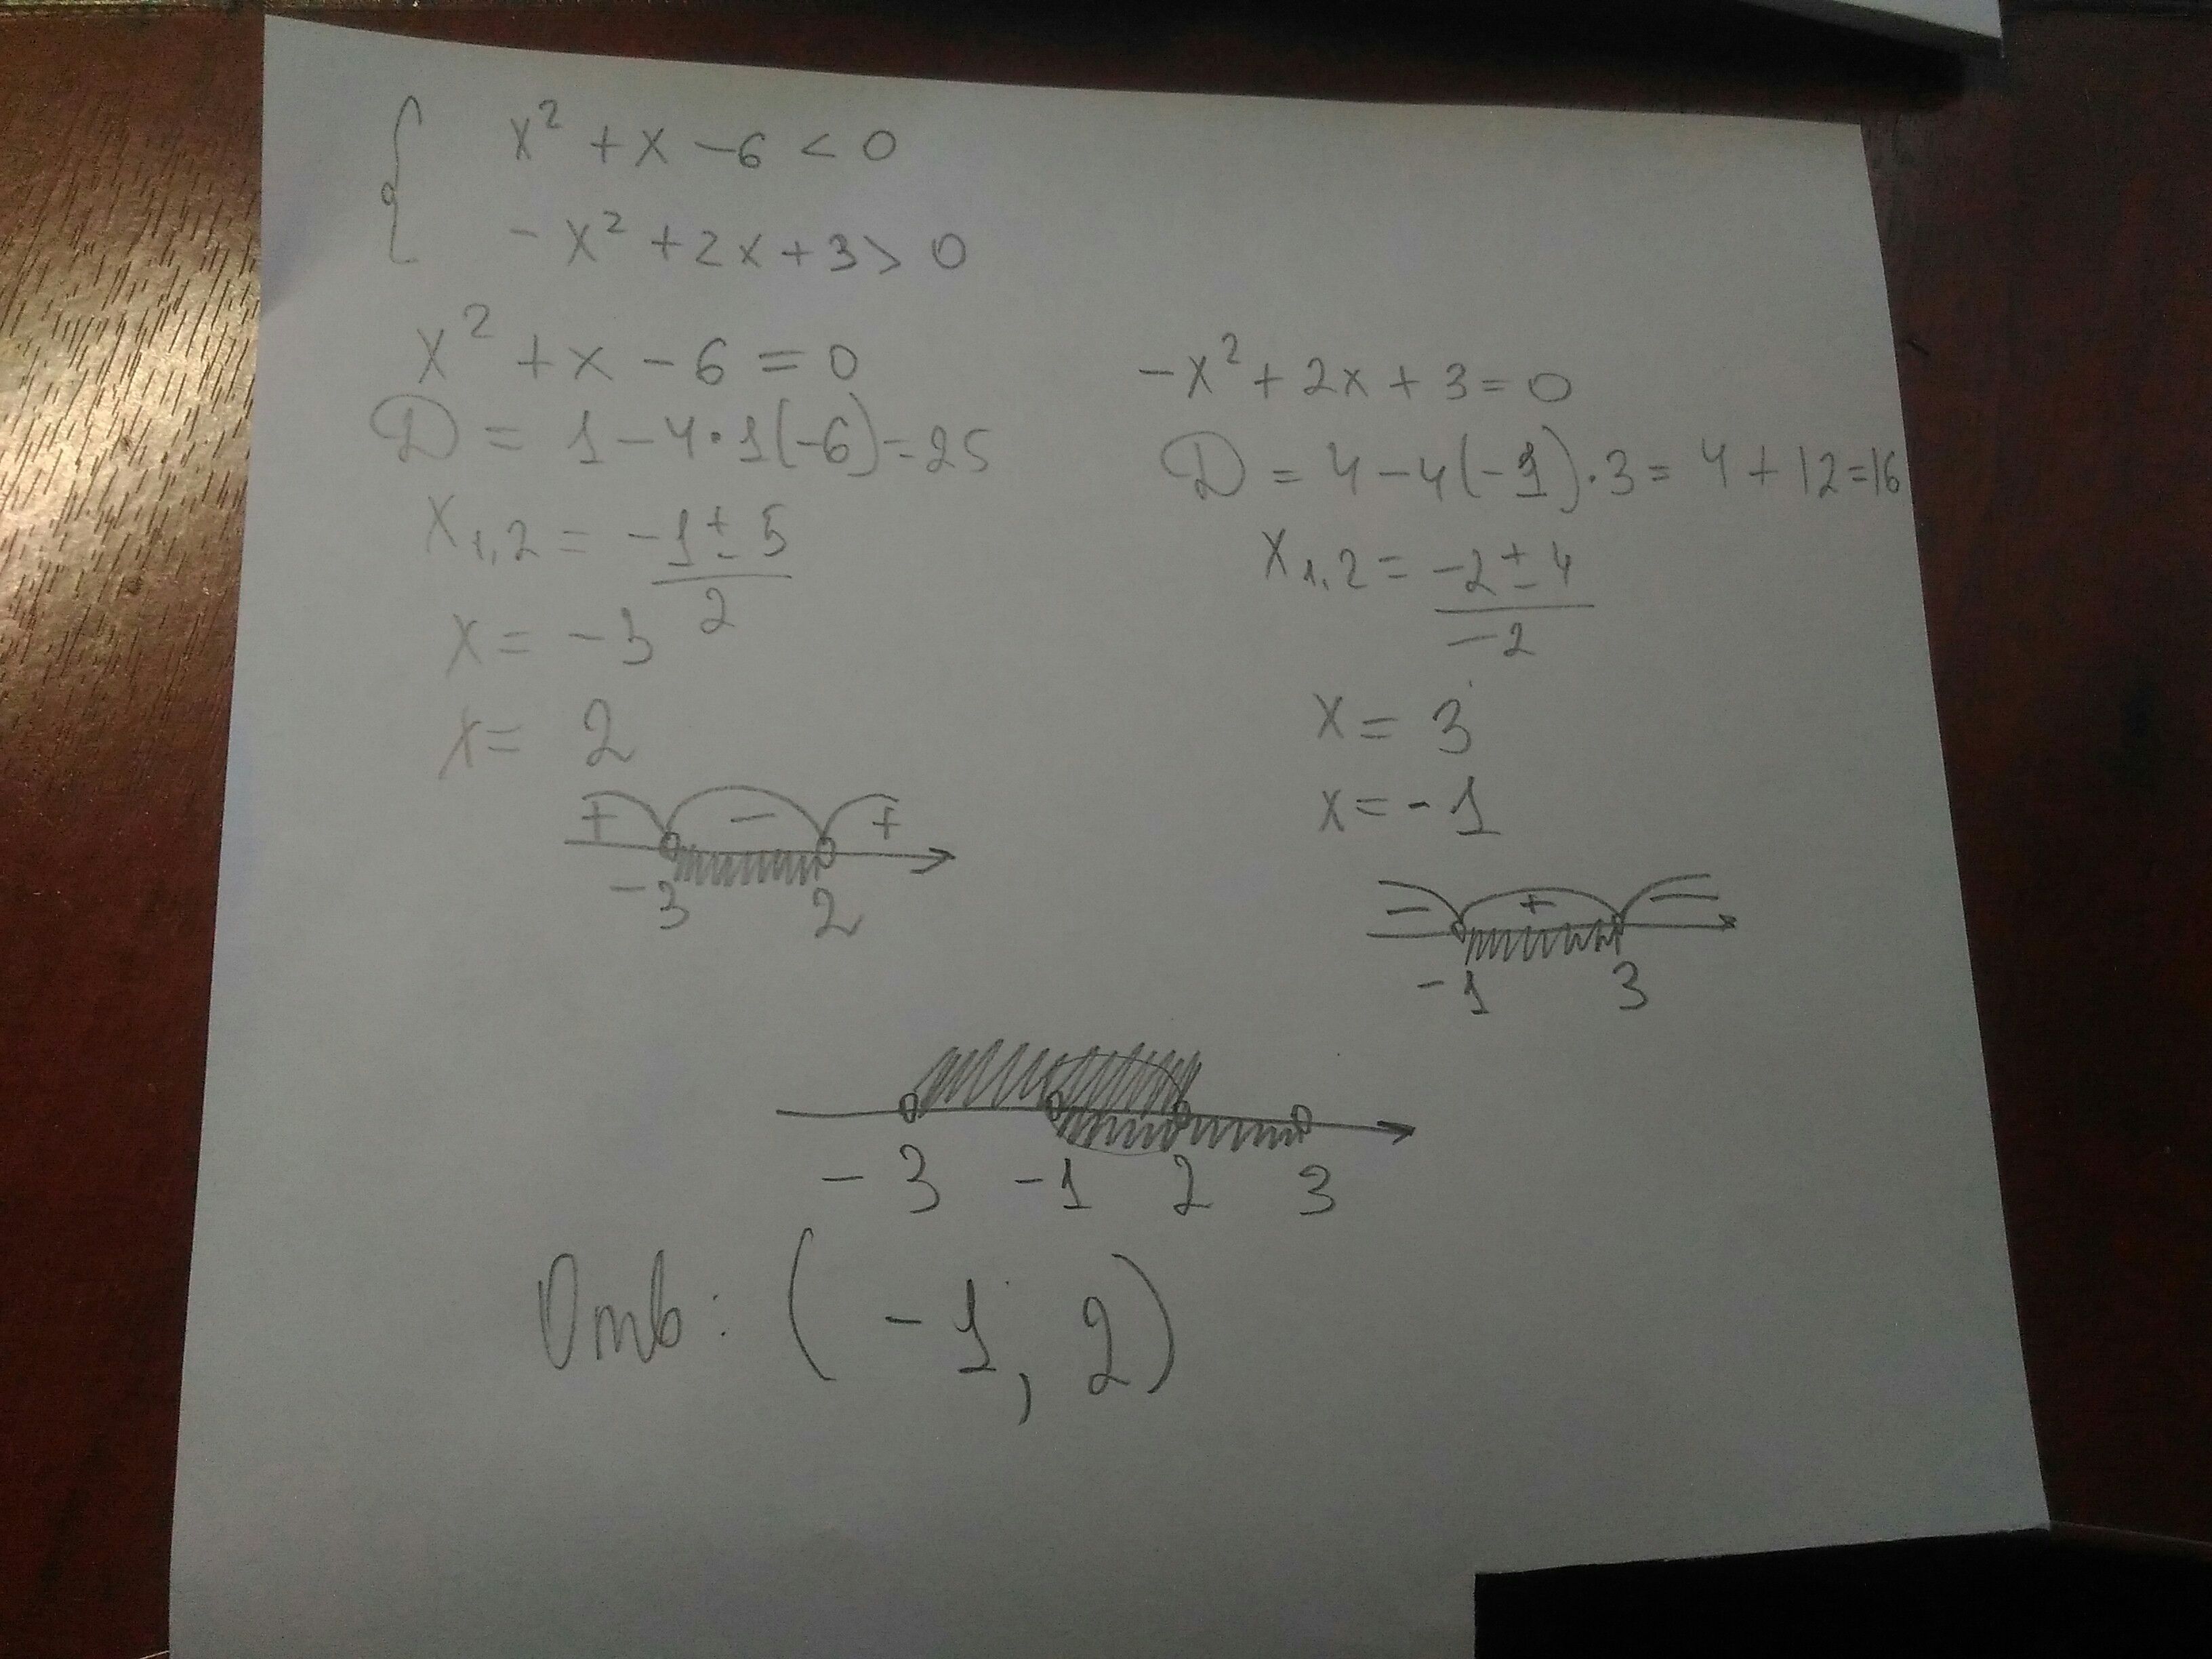 { x² + x − 6 < 0
− x² + 2x + 3 > 0
x² + x − 6 = 0
D = 1 − 4·1(−6) = 25
x₁,₂ = (−1 ± 5)/2
x = −3
x = 2
+ − +
−3 2
−x² + 2x + 3 = 0
D = 4 − 4(−1)·3 = 4 + 12 = 16
x₁,₂ = (−2 ± 4)/−2
x = 3
x = −1
− + −
−1 3
−3 −1 2 3
Отв: (−1, 2)